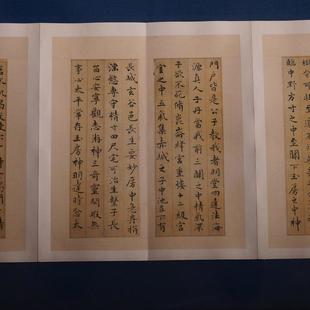 臨中野方寸之中至關下玉房之中神
門戶皆是公子教我者明堂四達法海
源真人子丹當我前三關之中精氣深
子欲不死脩崑崙絳宮重樓十二級宮
室之中五氣集赤城之子中池立下有
長城玄谷邑長生要妙房中急弃捐
淫慾專守精寸田尺宅可治生繫子長
留心安寧觀志游神三奇靈閒暇無
事心太平常存玉房神明達時念太